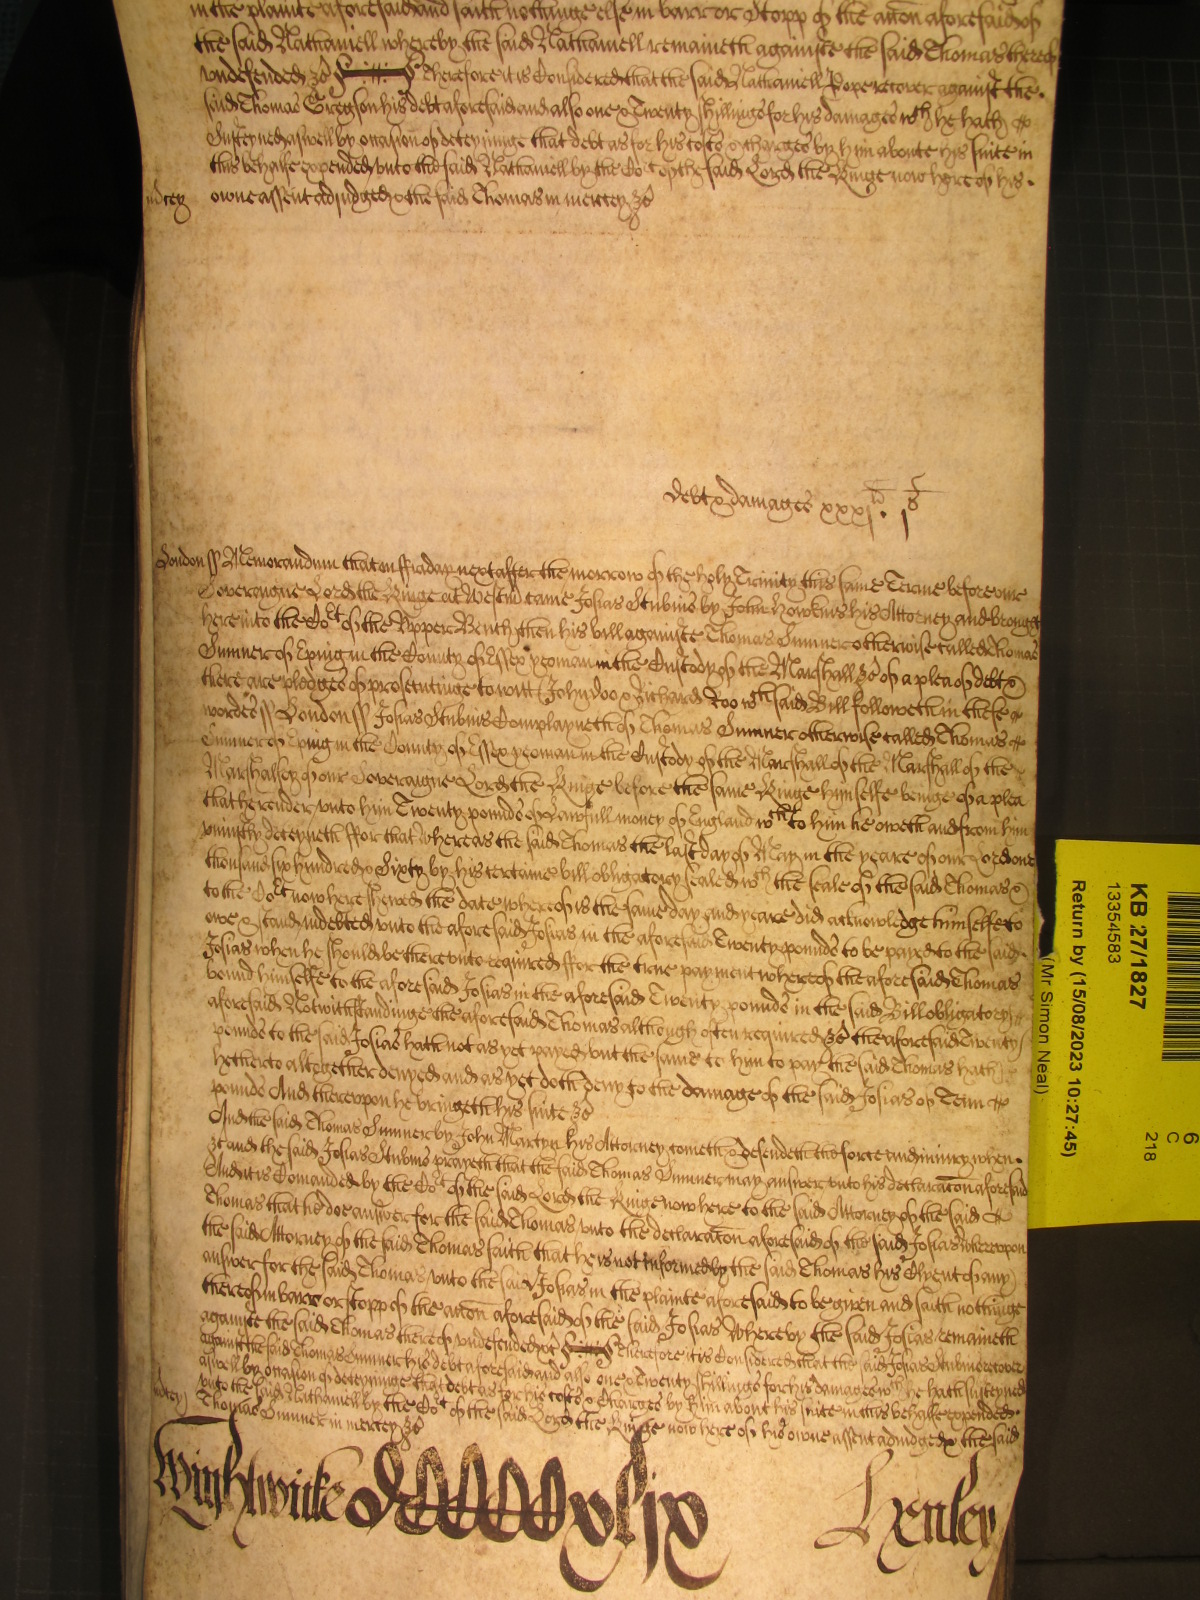 in the plainte aforesaid and saith nothinge else in barr or Stopp of the accon aforesaid of
the said Nathaniell whereby the said Nathaniell remaineth againste the said Thomas thereof
undefended &c Therefore it is Considered that the said Nathaniell Pope recover against the
said Thomas Gregson his debt aforesaid and also one & Twenty shillings for his damages wch he hath
Susteyned aswell by occasion of deteyninge that debt as for his costs & charges by him aboute his suite in
this behalfe expended unto the said Nathaniell by the Cort of the said Lord the Kinge now here of his
owne assent adjudged & the said Thomas in mercey &c
mercy
debt & damages xxxj l. j s
London ss Memorandum that on ffriday next after the morrow of the holy Trinity this same Terme before our
Soveraigne Lord the Kinge at Westm came Josias Stubins by John Hawkins his Attorney and brought
here into the Cort of the Upper Bench then his bill againste Thomas Sumner otherwise called Thomas
Sumner of Eping in the County of Essex yeoman in the Custody of the Marshall &c of a plea of debt &
there are pledges of prosecutinge to witt John Doo & Richard Roo wch said Bill followeth in these
wordes ss London ss Josias Stubins Complayneth of Thomas Sumner otherwise called Thomas
Sumner of Eping in the County of Essex yeoman in the Custody of the Marshall of the Marshall of the
Marshalsey of our Soveraigne Lord the Kinge before the same Kinge himselfe beinge of a plea
that he render unto him Twenty pounds of Lawfull money of England wch to him he oweth and from him
uniustly deteyneth ffor that whereas the said Thomas the last day of May in the yeare of our Lord one
thousand six hundred & Sixty by his certaine bill obligatory sealed wth the seale of the said Thomas &
to the Cort now here shewed the date whereof is the same day and yeare did acknowledge himselfe to
owe & stand indebted unto the aforesaid Josias in the aforesaid Twenty pounds to be payed to the said
Josias when he should be thereunto required ffor the true payment whereof the aforesaid Thomas
bound himselfe to the aforesaid Josias in the aforesaid Twenty pounds in the said Bill obligatory
aforesaid Notwithstandinge the aforesaid Thomas although often required &c the aforesaid Twenty
pounds to the said Josias hath not as yet payed but the same to him to pay the said Thomas hath
hetherto altogether denyed and as yet doth deny to the damage of the said Josias of Tenn
pounds And thereupon he bringeth his suite &c
And the said Thomas Sumner by John Martyn his Attorney cometh & defendeth the force and iniury when
&c and the said Josias Stubins prayeth that the said Thomas Sumner may answer unto his declaracon aforesaid
And it is Comanded by the Cort of the said Lord the Kinge now here to the said Attorney of the said
Thomas that he doe answer for the said Thomas unto the declaracon aforesaid of the said Josias Whereupon
the said Attorney of the said Thomas saith that he is not informed by the said Thomas his Clyent of any
answer for the said Thomas unto the said Josias in the plainte aforesaid to be given and saith nothinge
thereof in barr or stopp of the accon aforesaid of the said Josias Whereby the said Josias remaineth
againste the said Thomas thereof undefended &c Therefore it is Considered that the said Josias Stubins recover
against the said Thomas Sumner his debt aforesaid and also one & Twenty shillings for his damages wch he hath susteyned
aswell by occasion of deteyninge that debt as for his costs & Charges by him about his suite in this behalfe expended
unto the said Nathaniell by the Cort of the said Lord the Kinge now here of his owne assent adiudged & the said
mercy
Thomas Sumner in mercey &c
Wightwicke
xlix
Henley
KB 27/1827
13354583
Return by (15/08/2023 10:27:45)
(Mr Simon Neal)
6
C
218